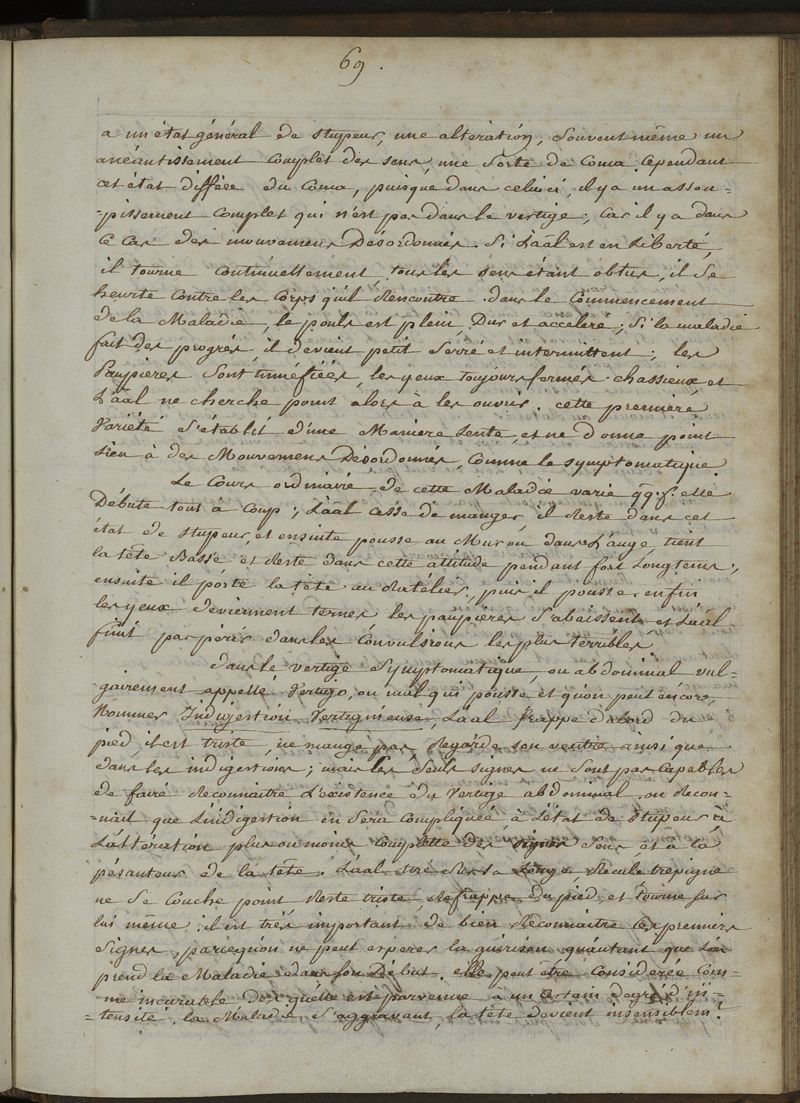 69.
a un état général de stupeur, une altération, souvent même un
anéantissement complet des sens, une sorte de Coma. Cependant
cet état diffère du Coma, puisque dans celui ci, il y a un assou-
-pissement complet qui n'est pas dans le vertige; car il y a dans
ce cas des mouvemens Désordonnés. Si L'aâl est en Liberté,
il tourne Continuellement tous les sens étant obtus, il se
heurte contre les Corps qu'il Rencontre. dans le Commencement
de la Maladie, le pouls est plein, Dur et acceleré; si la maladie
fait des progrès, il devient petit serré et intermittent; les
Paupières sont tuméfiées, les yeux toujours fermés chassieux et
L'aâl ne cherche point alors à les ouvrir. cette première
Variété s'établit d'une Maniere Lente, et ne donne point
Lieu à des Mouvemens Désordonnés, Comme le symptomatique.
Le Cours ordinaire de cette Maladie varie qqf. elle
Débute tout à Coup; L'aâl cesse de manger, il Reste dans cet
état de stupeur, et ensuite pousse au Mur ou dans L'auge, tient
la tête Basse et Reste dans cette attitude pendant fort Longtems;
ensuite il porte la tête au Ratélier, puis il pousse, enfin
les yeux deviennent ternes les paupières s'abaissent et L'aâl
finit par périr dans les Convulsions les plus terribles.
Dans le vertige Symptomatique, ou abdominal vul-
-gairement appellé Vertigo, ou mal qui pousse et qu'on peut encore
Nommer Indigestion Vertigineuse, L'aal frappe d'abord du
pied, il est triste, ne mange pas, Regarde son ventre ainsi que
dans les indigestions; mais les seuls signes ne sont pas Capables
de faire Reconnaitre L'existence du Vertige abdominal, on Recon-
-nait que L'indigestion en sera Compliquée, à L'état de stupeur, à
L'altération plus ou moins Complette des signes sens et à la
pésanteur de la tête. L'aal tiré sur sa Longe Recule trépigne
ne se Couche point Reste triste, Refrappe du pied, et tourne sur
lui même, il est très important de bien Reconnaitre les premiers
signes, parcequ'on ne peut esperer la guérison qu'autant que L'on
prend la Maladie dans son Début. elle peut être Considérée Com-
-me incurable dès qu'elle est parvenue à un certain degré d'in-
-tensité. la Maladie s'aggravant, la tête devient insensiblemt